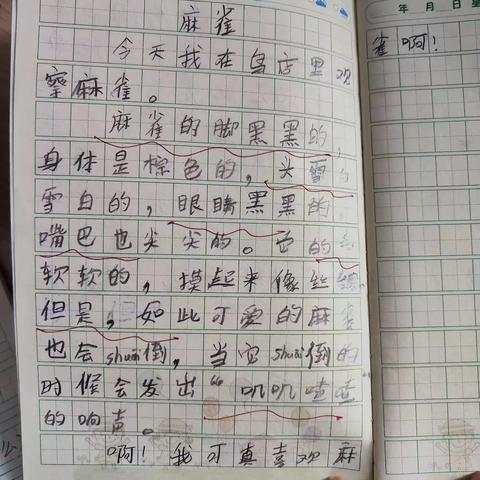 麻雀
今天我在鸟店里观
察麻雀。
麻雀的脚黑黑的,
身体是棕色的,头雪
雪白的,眼睛黑黑的
嘴巴也尖尖的。它的毛
软软的,摸起来像丝绸
但是,但如此可爱的麻雀
也会shuāi倒,当它shuāi倒的
时候会发出“叽叽喳喳”
的响声。
啊!我可真喜欢麻
雀啊!
年 月 日 星